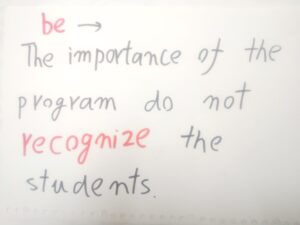 be →
The importance of the
program do not
recognize the
students.